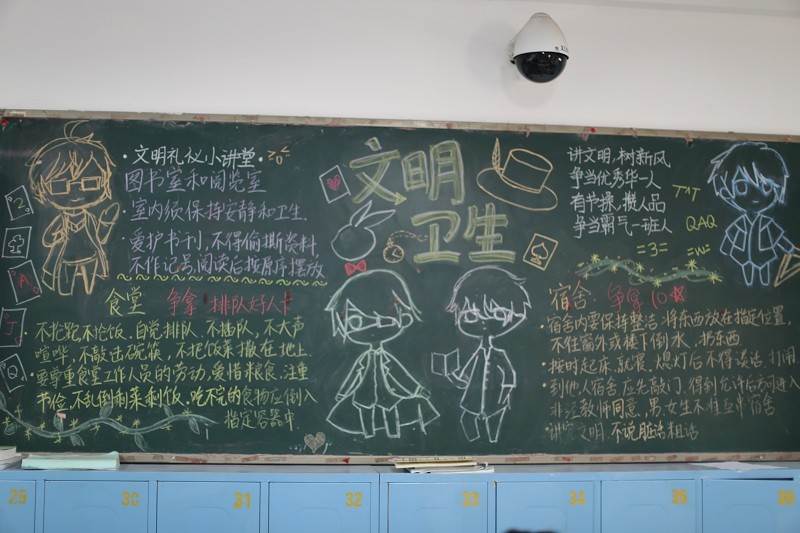 ·文明礼仪小讲堂·
图书室和阅览室
室内须保持安静和卫生.
·爱护书刊,不得偷撕资料,
不作记号,阅读后按原序摆放
食堂 争拿 排队好人卡
不抢跑,不抢饭.自觉排队,不插队,不大声
喧哗,不敲击碗筷,不把饭菜撒在地上.
·要尊重食堂工作人员的劳动,爱惜粮食.注重
节俭,不乱倒剩菜剩饭,吃不完的食物应倒入
指定容器中.
文明
卫生
讲文明,树新风,
争当优秀华一人
有节操,攒人品
争当霸气一班人
TAT
QAQ
=3=
=w=
宿舍: 争拿 10
·宿舍内要保持整洁.将东西放在指定位置,
不往窗外或楼下倒水、扔东西
·按时起床,就寝,熄灯后不得谈话、打闹
·到他人宿舍应先敲门,得到允许后方可进入
非经教师同意,男、女生不准互串宿舍
·讲究文明,不说脏话粗话
2
A
J
Q
29
30
31
32
33
34
35
36